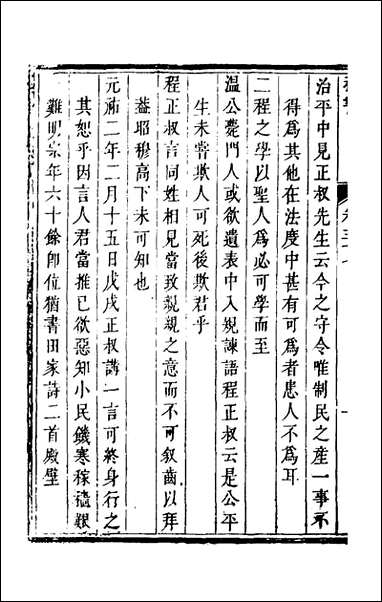 治平中見正叔先生云今之守令唯制民之產一事不
得為其他在法度中甚有可為者患人不為耳
二程之學以聖人為必可學而至
溫公薨門人或欲遺表中入規諫語程正叔云是公平
生未嘗欺人可死後欺君乎
程正叔言同姓相見當致親親之意而不可叙齒以拜
葢昭穆高下未可知也
元祐二年二月十五日戊戌正叔講一言可終身行之
其恕乎因言人君當推已欲惡知小民饑寒稼穡艱
難明宗年六十餘即位猶書田家詩二首殿壁